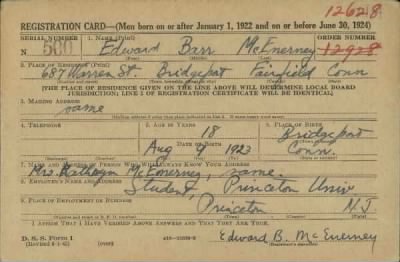 12628
REGISTRATION CARD—(Men born on or after January 1, 1922 and on or before June 30, 1924)
SERIAL NUMBER 1. NAME (Print) ORDER NUMBER
N 560 Edward Barr McEnerney 12928
2. PLACE OF RESIDENCE (Print)
687 Warren St. Bridgeport Fairfield Conn
[THE PLACE OF RESIDENCE GIVEN ON THE LINE ABOVE WILL DETERMINE LOCAL BOARD
JURISDICTION; LINE 2 OF REGISTRATION CERTIFICATE WILL BE IDENTICAL]
3. MAILING ADDRESS
same
[Mailing address if other than place indicated on line 2. If same insert word same]
4. TELEPHONE 5. AGE IN YEARS 6. PLACE OF BIRTH
18 Bridgeport
DATE OF BIRTH
Aug 9 1923 Conn.
7. NAME AND ADDRESS OF PERSON WHO WILL ALWAYS KNOW YOUR ADDRESS
Mrs. Kathryn McEnerney, same.
8. EMPLOYER'S NAME AND ADDRESS
Student, Princeton Univ
9. PLACE OF EMPLOYMENT OR BUSINESS
Princeton N.J
I AFFIRM THAT I HAVE VERIFIED ABOVE ANSWERS AND THAT THEY ARE TRUE.
D. S. S. Form 1
Edward B. McEnerney